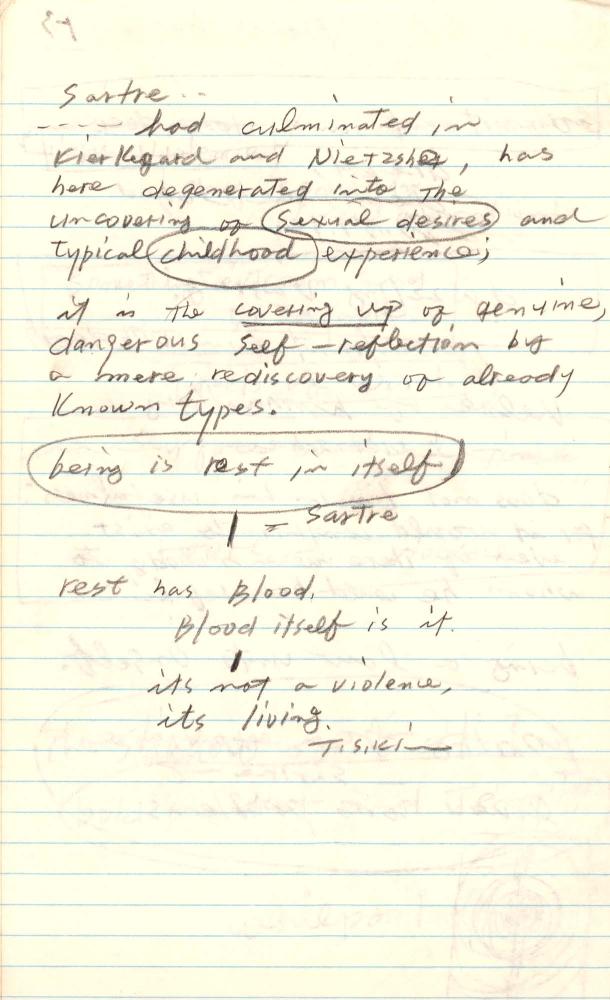 Sartre...
---- had culminated in
Kierkegard and Nietzshe, has
here degenerated into the
uncovering of sexual desires and
typical childhood experience;
it is the covering up of genuine,
dangerous self-reflection by
a mere rediscovery of already
Known types.
being is rest in itself
= Sartre
rest has Blood.
Blood itself is it.
its not a violence,
its living.